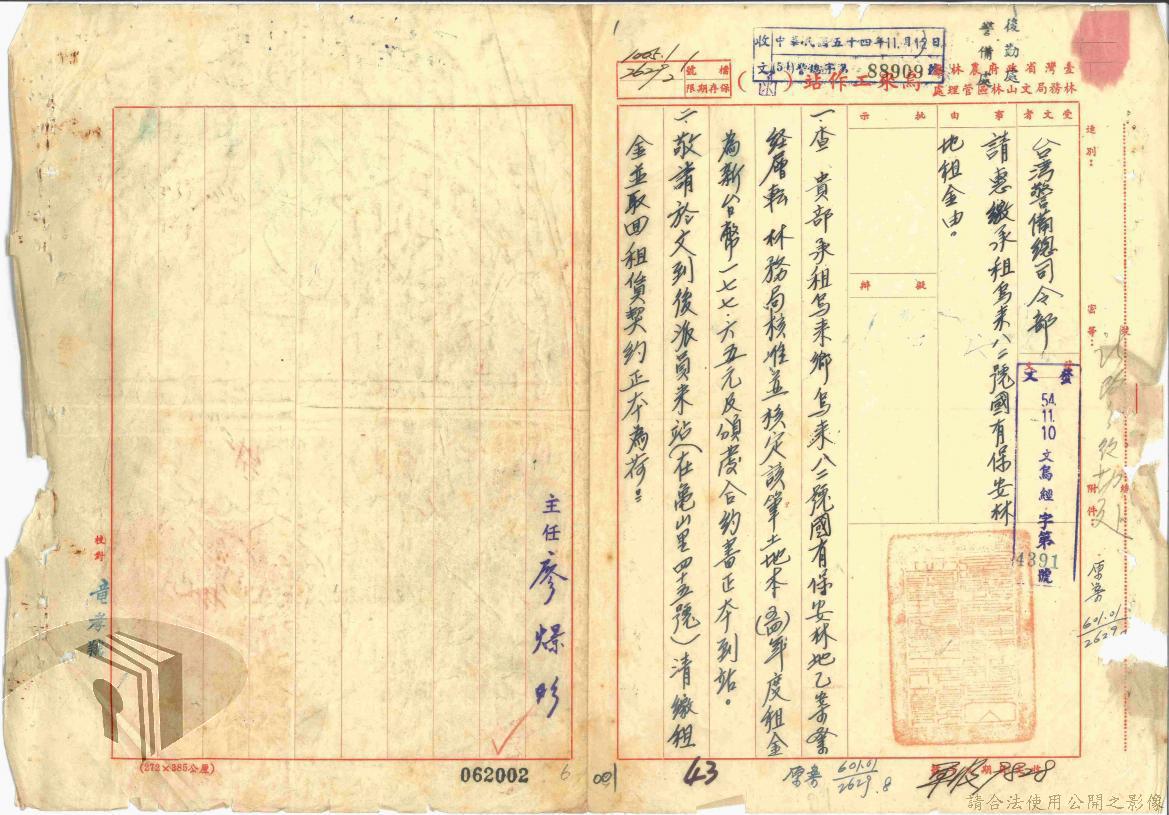 臺灣省政府農林廳
林務局文山林區管理處
烏來工作站
檔號
保存期限
收文
中華民國五十四年11月12日
(54)警總字第88909號
後勤處
警備處
1005.1
2629
速別:
密等:
附件:
受文者
台湾警備總司令部
事由
請惠繳承租烏來八二號國有保安林
地租金由。
批示
擬辦
發文
54.11.10
文烏經字第4391號
一、查 貴部承租烏來鄉烏來八二號國有保安林地乙案業
経層転 林務局核准並核定該筆土地本(五四)年度租金
為新台幣一七七.六五元及頒發合約書正本到站。
二、敬請於文到後派員來站(在龜山里四十五號)清繳租
金並取回租賃契約正本為荷。
主任 廖
校對
(272×385公厘)
062002
6
001
43
601.01
2629.8
601.01
2629
裝
請合法使用公開之影像